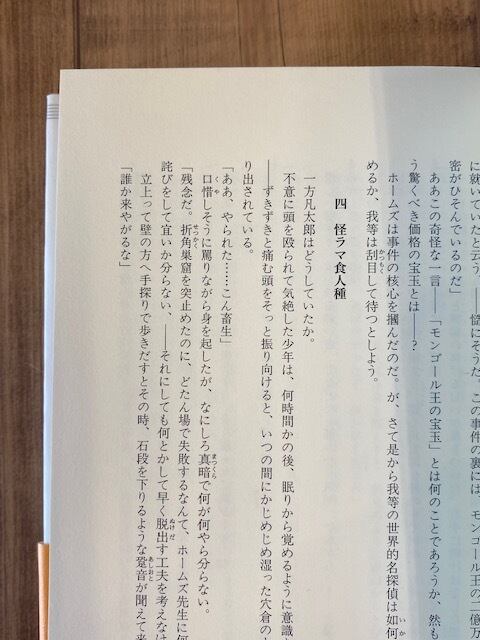 に就いていたと云う。……慥にそうだ。この事件の裏には、モンゴール王の二億万
密がひそんでいるのだ」
ああこの奇怪な一言――「モンゴール王の宝玉」とは何のことであろうか、然も
う驚くべき価格の宝玉とは――?
ホームズは事件の核心を摑んだのだ。が、さて是から我等の世界的名探偵は如何
いか
めるか、我等は刮目して待つとしよう。
かつもく
四 怪ラマ食人種
一方凡太郎はどうしていたか。
不意に頭を殴られて気絶した少年は、何時間かの後、眠りから覚めるように意識
――ずきずきと痛む頭をそっと振り向けると、いつの間にかじめじめ湿った穴倉の
り出されている。
「ああ、やられた……こん畜生」
口惜しそうに罵りながら身を起したが、なにしろ真暗で何が何やら分らない。
くや
まつくら
「残念だ。折角巣窟を突止めたのに、どたん場で失敗するなんて、ホームズ先生に何
せっかく
詫びをして宜いか分らない、――それにしても何とかして早く脱出す工夫を考えなけ
ぬけだ
立上って壁の方へ手探りで歩きだすとその時、石段を下りるような跫音が聞えて来
あしおと
「誰か来やがるな」